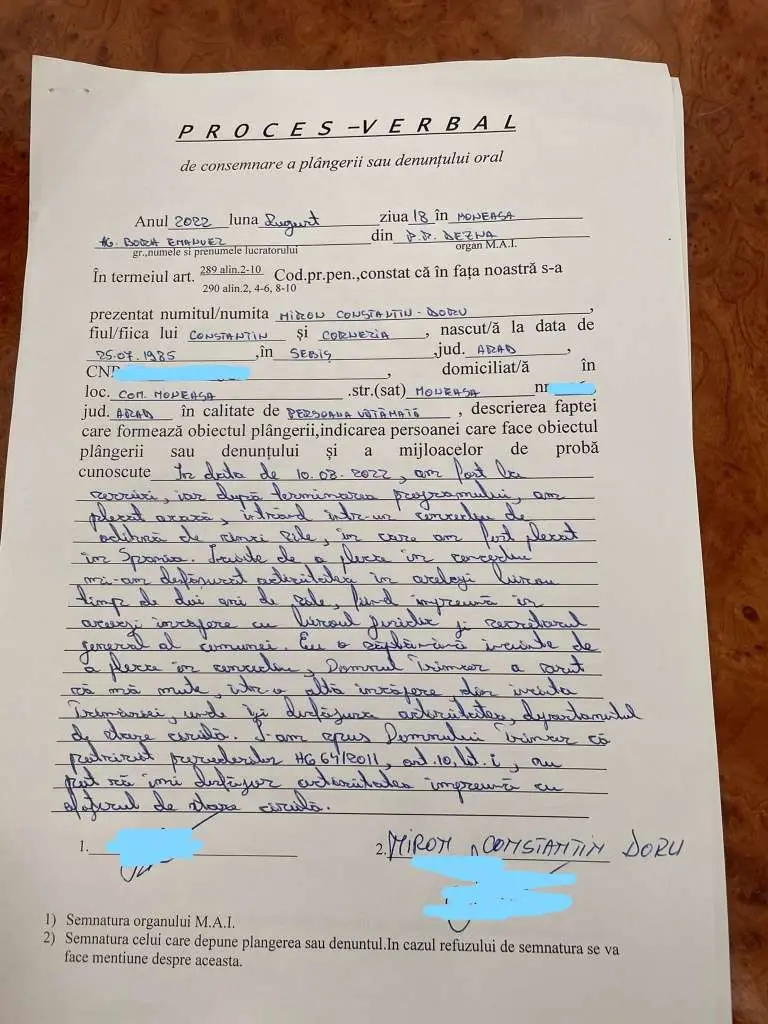 PROCES-VERBAL
de consemnare a plângerii sau denunțului oral
Anul 2022 luna August ziua 18 în MONEASA
AG. BORZA EMANUEL din P.P. DEZNA
gr.,numele si prenumele lucratorului organ M.A.I.
În termeiul art. 289 alin.2-10 Cod.pr.pen.,constat că în fața noastră s-a
290 alin.2, 4-6, 8-10
prezentat numitul/numita MIRON CONSTANTIN-DORU ,
fiul/fiica lui CONSTANTIN și CORNELIA , nascut/ă la data de
25.07.1985 ,în SEBIȘ ,jud. ARAD ,
CNP , domiciliat/ă în
loc. COM. MONEASA .str.(sat) MONEASA nr
jud. ARAD în calitate de PERSOANA VĂTĂMATĂ , descrierea faptei
care formează obiectul plângerii,indicarea persoanei care face obiectul
plângerii sau denunțului și a mijloacelor de probă
cunoscute În data de 10.08.2022, am fost la
servici, iar după terminarea programului, am
plecat acasă, intrând într-un concediu de
odihnă de cinci zile, în care am fost plecat
în Spania. Înainte de a pleca în concediu
mi-am desfășurat activitatea în același birou
timp de doi ani de zile, fiind împreună în
aceeași încăpere cu biroul juridic și secretarul
general al comunei. Eu o săptămână înainte de
a pleca în concediu, Domnul Primar a cerut
să mă mute, într-o altă încăpere din incinta
Primăriei, unde își desfășura activitatea, departamentul
de stare civilă. I-am spus Domnului Primar că
potrivit prevederilor HG 64/2011, art. 10, lit. i, nu
pot să îmi desfășor activitatea împreună cu
ofițerul de stare civilă.
1. 2. MIRON CONSTANTIN DORU
1) Semnatura organului M.A.I.
2) Semnatura celui care depune plangerea sau denuntul.In cazul refuzului de semnatura se va
face mentiune despre aceasta.